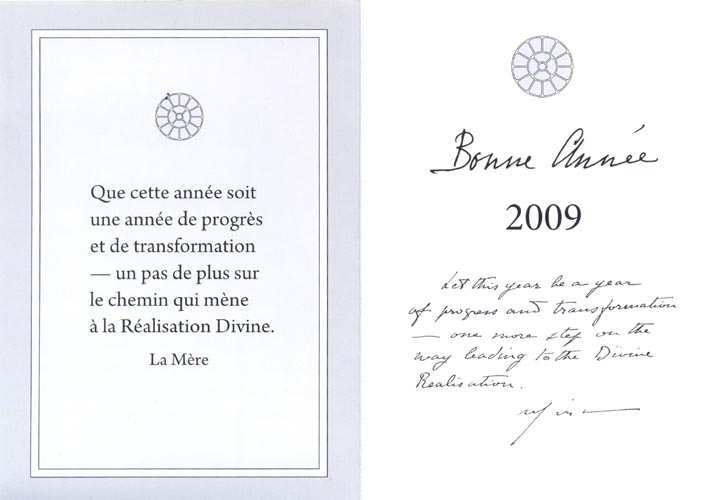 Que cette année soit
une année de progrès
et de transformation
— un pas de plus sur
le chemin qui mène
à la Réalisation Divine.
La Mère
Bonne Année
2009
Let this year be a year
of progress and transformation
— one more step on the
way leading to the Divine
Realisation.